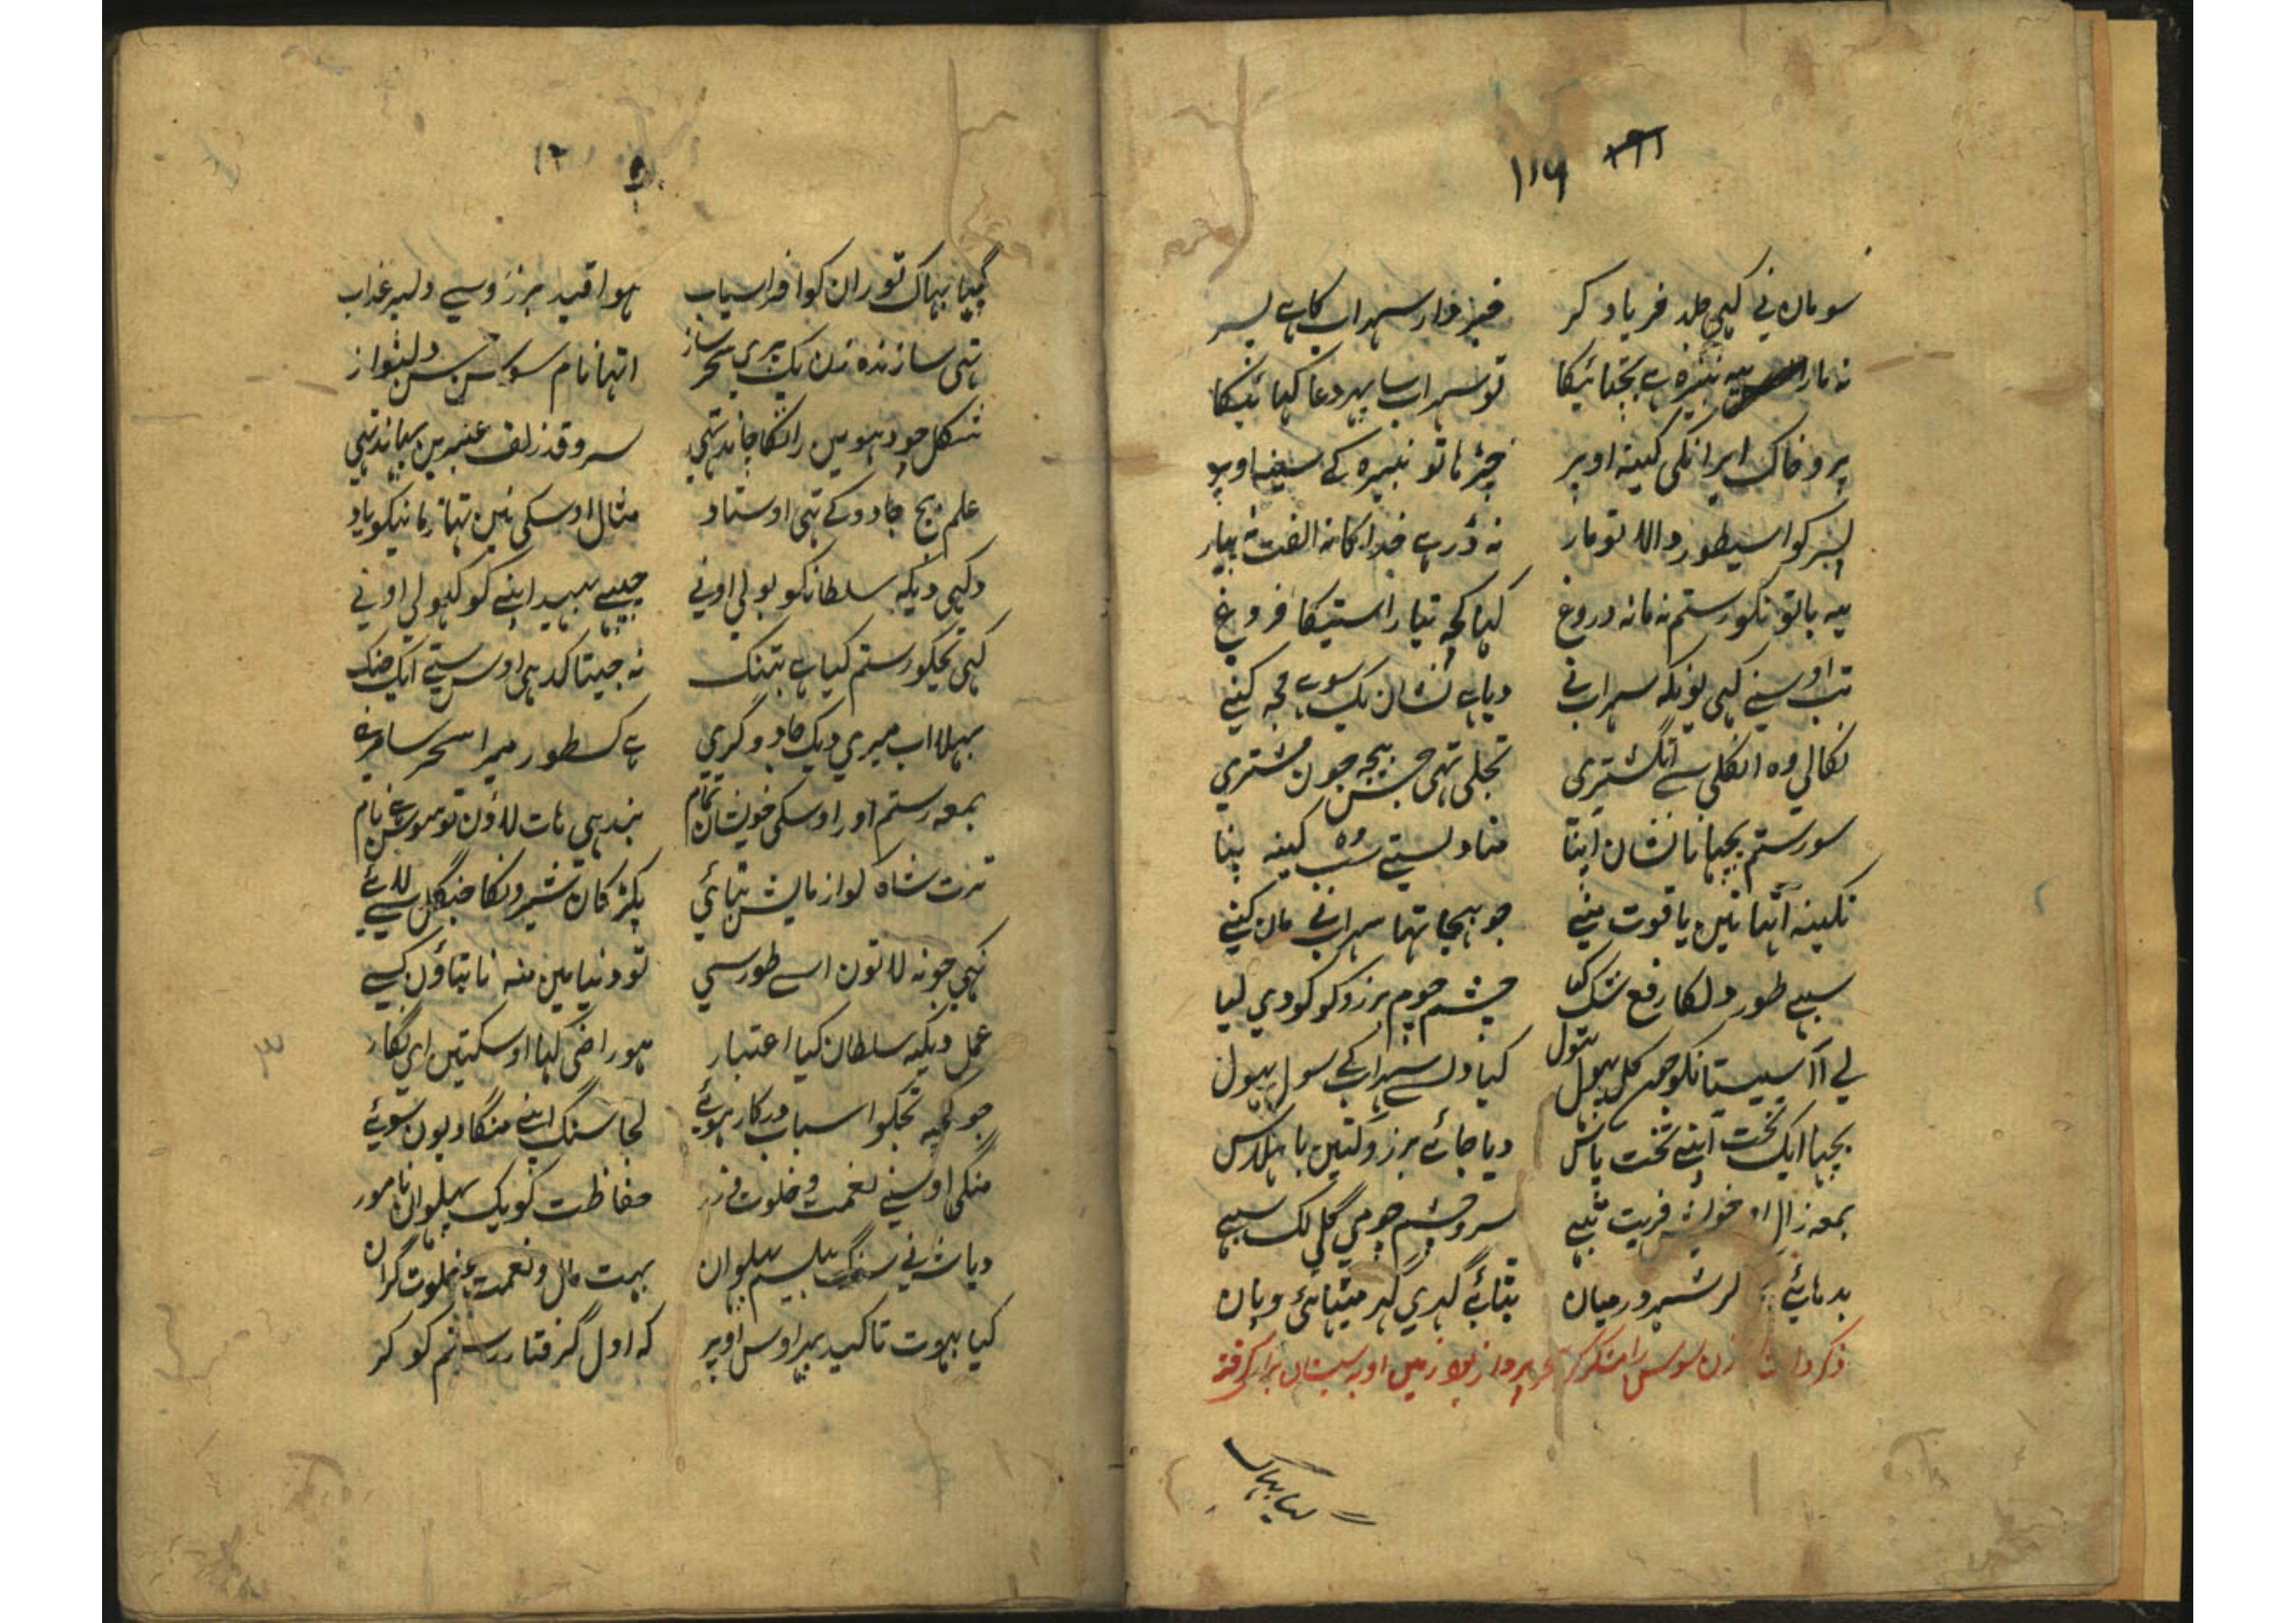 ۱۱۹
سو مان نی کہی جلد فریاد کر خبردار سہراب کا ہے پسر
نہ مار یہ نبیرہ ہے پچتائیگا تو سہراب سا پہر دعا کہائیگا
پر و خاک ایرانکی کینہ اوپر چڑہا تو نبیرہ کے سینہ اوپر
پسر کو اسیطور والا تو مار نہ ڈر ہے خدا کا نہ الفت نہ پیار
یہ باتونکو رستم نہ مانہ دروغ کہا کچہ بتا راستیکا فروغ
تب اوسنے کہی یونکہ سہراب نی دیا ہے نشان یک سو ہے مجہ کنے
نکالی وہ انگلی سے انگشتری تجلی تہی جس بیچہ جون مشتری
سو رستم پچہانا نشان اپنا مٹا دلستے وہ شب کینہ پنا
نگینہ اتہا تین یاقوت منے جو بہیجا تہا سہراب نے مان کنے
سبہے طور دلکا رفع شک کیا چشم چوم برزو کو کودی لیا
لے آ سیستانکو جمن کل پہول بتول کیا دل سے سہراب کے سول بہول
بچہا ایک تخت اپنے تخت پاس دیا جائے برزو کتین با ہلاس
بمعہ زال او خویش قربت سبہے سر و چشم چومی گلی لگ سبہے
بدہائے لر شہر درمیان بٹائے گہری گہر مٹہائی و پان
ذکر زن سوس رامشگر
گیا بہاک
۱۲
گیا بہاک توران کو افراسیاب ہوا قید برزو سے دلپر عذاب
تہی سازندہ زن یک پری سحر ساز اتہا نام سوسن دلنواز
شکل چودہوین رانگا چاند تہی سرو قد زلف عنبرین سا ند تہی
علم بیچ جادو کے تہی اوستاد مثال اوسکی نین تہا زمانیکو یاد
دکہی دیکہ سلطانکو بولی اونے چہپے بہید اپنے کو کہولی اونے
کہی تجکو رستم کیا ہے بتنک نہ جیتا کدہی اوس ستے ایک جنک
بہلا اب میری دیک جادوگری ہے کسطور میرا سحر سامری
بمعہ رستم اور اوسکی خویشان تمام بند ہی ہات لاؤن تو سوسن ہے نام
ترت شاہ کو آزمایش بتائی پکڑ کان شیرونکا جنگل سے لائے
کہی جو نہ لاتون اسے طور سے تو دنیا مین منہ نا بتاؤن کسے
عمل دیکہ سلطان کیا اعتبار ہو راضی کہا اوسکتین ای نگار
جو کچہ تجکو اسباب درکار ہوئے لجا سنگ اپنے منگا دیون سوئے
منگی اوسنے نعمت و خلوت و زر حفاظت کو یک پہلوان نامور
دیا شہ نے سنگ پیلسم پہلوان بہت مال و نعمت خلوت گران
کیا بہوت تاکید پہر اوس اوپر کہ اول گرفتار رستم کو کر